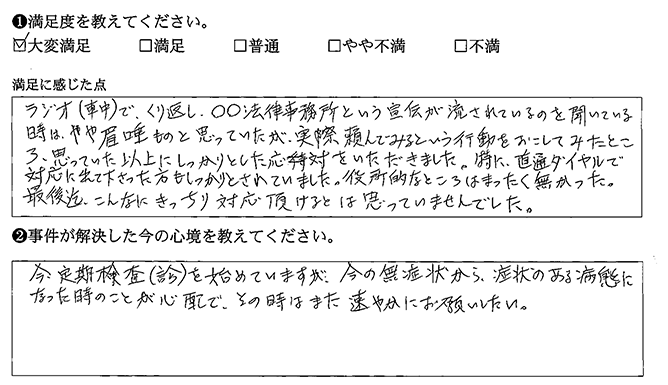 ❶満足度を教えてください。
☑大変満足 □満足 □普通 □やや不満 □不満
満足に感じた点
ラジオ(車中)で、くり返し、〇〇法律事務所という宣伝が流されているのを聞いている
時は、やや眉唾ものと思っていたが、実際頼んでみるという行動をおこしてみたとこ
ろ、思っていた以上にしっかりとした応対をいただきました。特に、直通ダイヤルで
対応に出て下さった方もしっかりとされていました。役所的なところはまったく無かった。
最後迄、こんなにきっちり対応頂けるとは思っていませんでした。
❷事件が解決した今の心境を教えてください。
今定期検査(診)を始めていますが、今の無症状から、症状のある病態に
なった時のことが心配で、その時はまた速やかにお願いしたい。